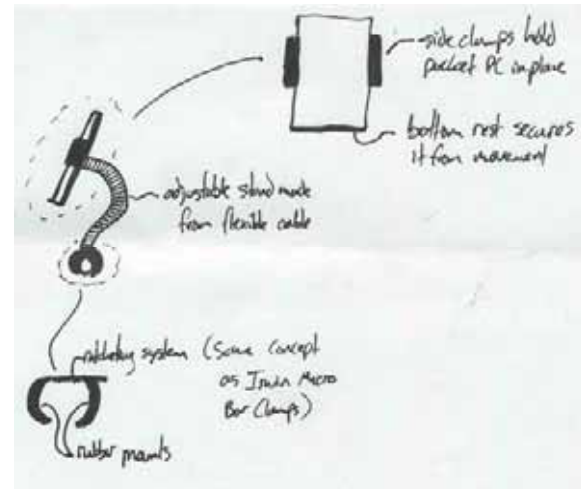 side clamps hold
pocket PC in place
bottom rest secures
it from movement
adjustable stand made
from flexible cable
ratcheting system (Same concept
as Irwin Micro
Bar Clamps)
rubber mounts